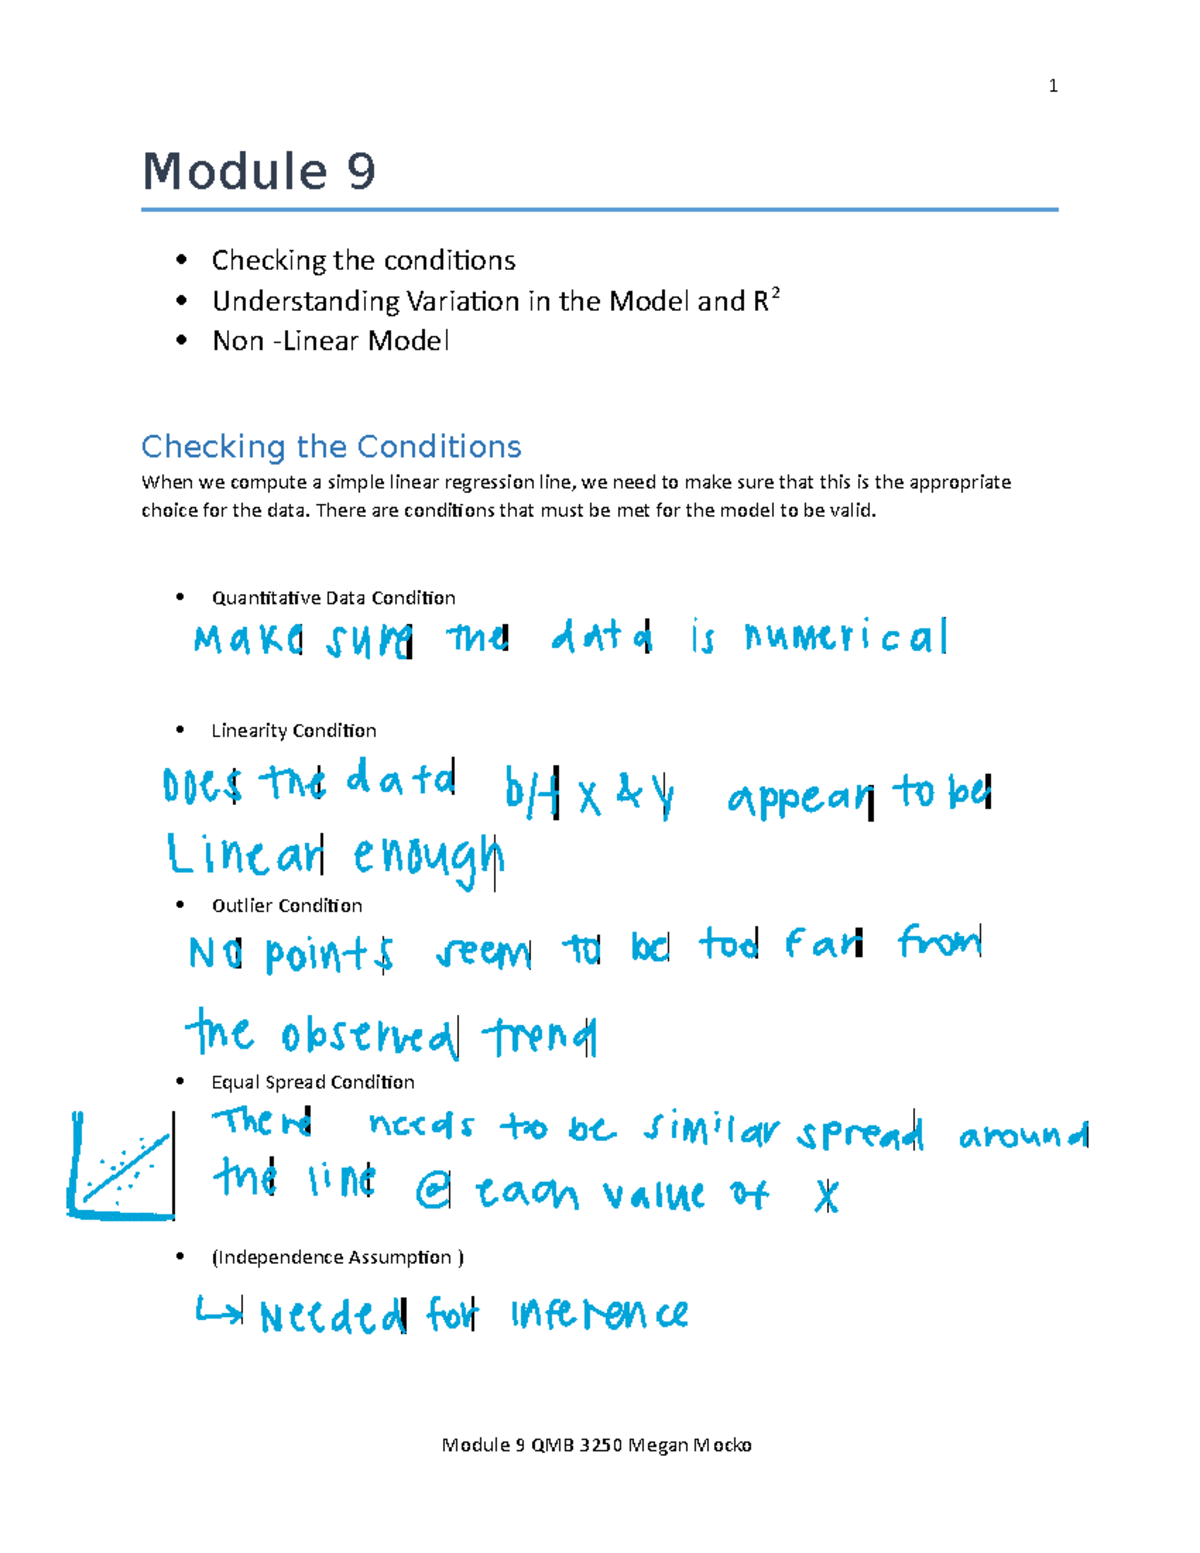 1
Module 9
• Checking the conditions
• Understanding Variation in the Model and R²
• Non -Linear Model
Checking the Conditions
When we compute a simple linear regression line, we need to make sure that this is the appropriate
choice for the data. There are conditions that must be met for the model to be valid.
• Quantitative Data Condition
Make sure the data is numerical
• Linearity Condition
Does the data b/t x & y appear to be
Linear enough
• Outlier Condition
No points seem to be too far from
the observed trend
• Equal Spread Condition
There needs to be similar spread around
the line @ each value of x
• (Independence Assumption )
↳ Needed for inference
Module 9 QMB 3250 Megan Mocko